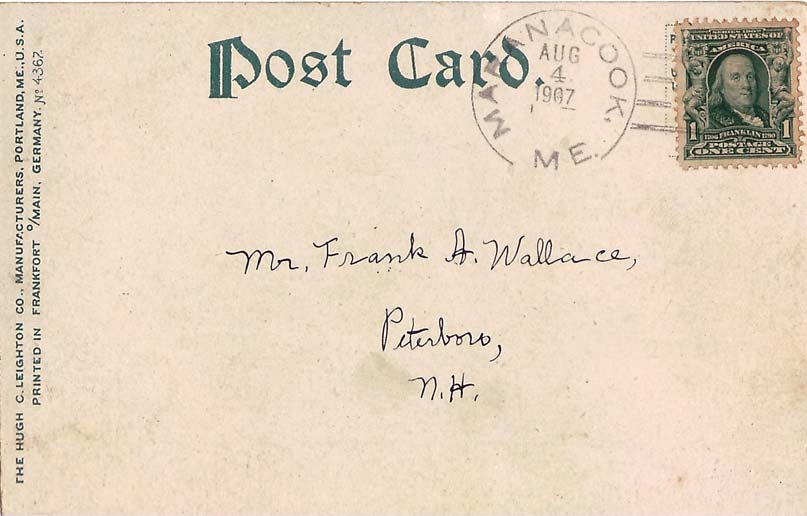 Post Card.
MARANACOOK,
AUG
4
1907
ME.
SERIES 1902
UNITED STATES OF
AMERICA
1 1706 FRANKLIN 1790 1
POSTAGE
ONE CENT
Mr. Frank A. Wallace,
Peterboro,
N.H.
THE HUGH C. LEIGHTON CO., MANUFACTURERS, PORTLAND, ME., U.S.A.
PRINTED IN FRANKFORT o/MAIN, GERMANY. No 4367